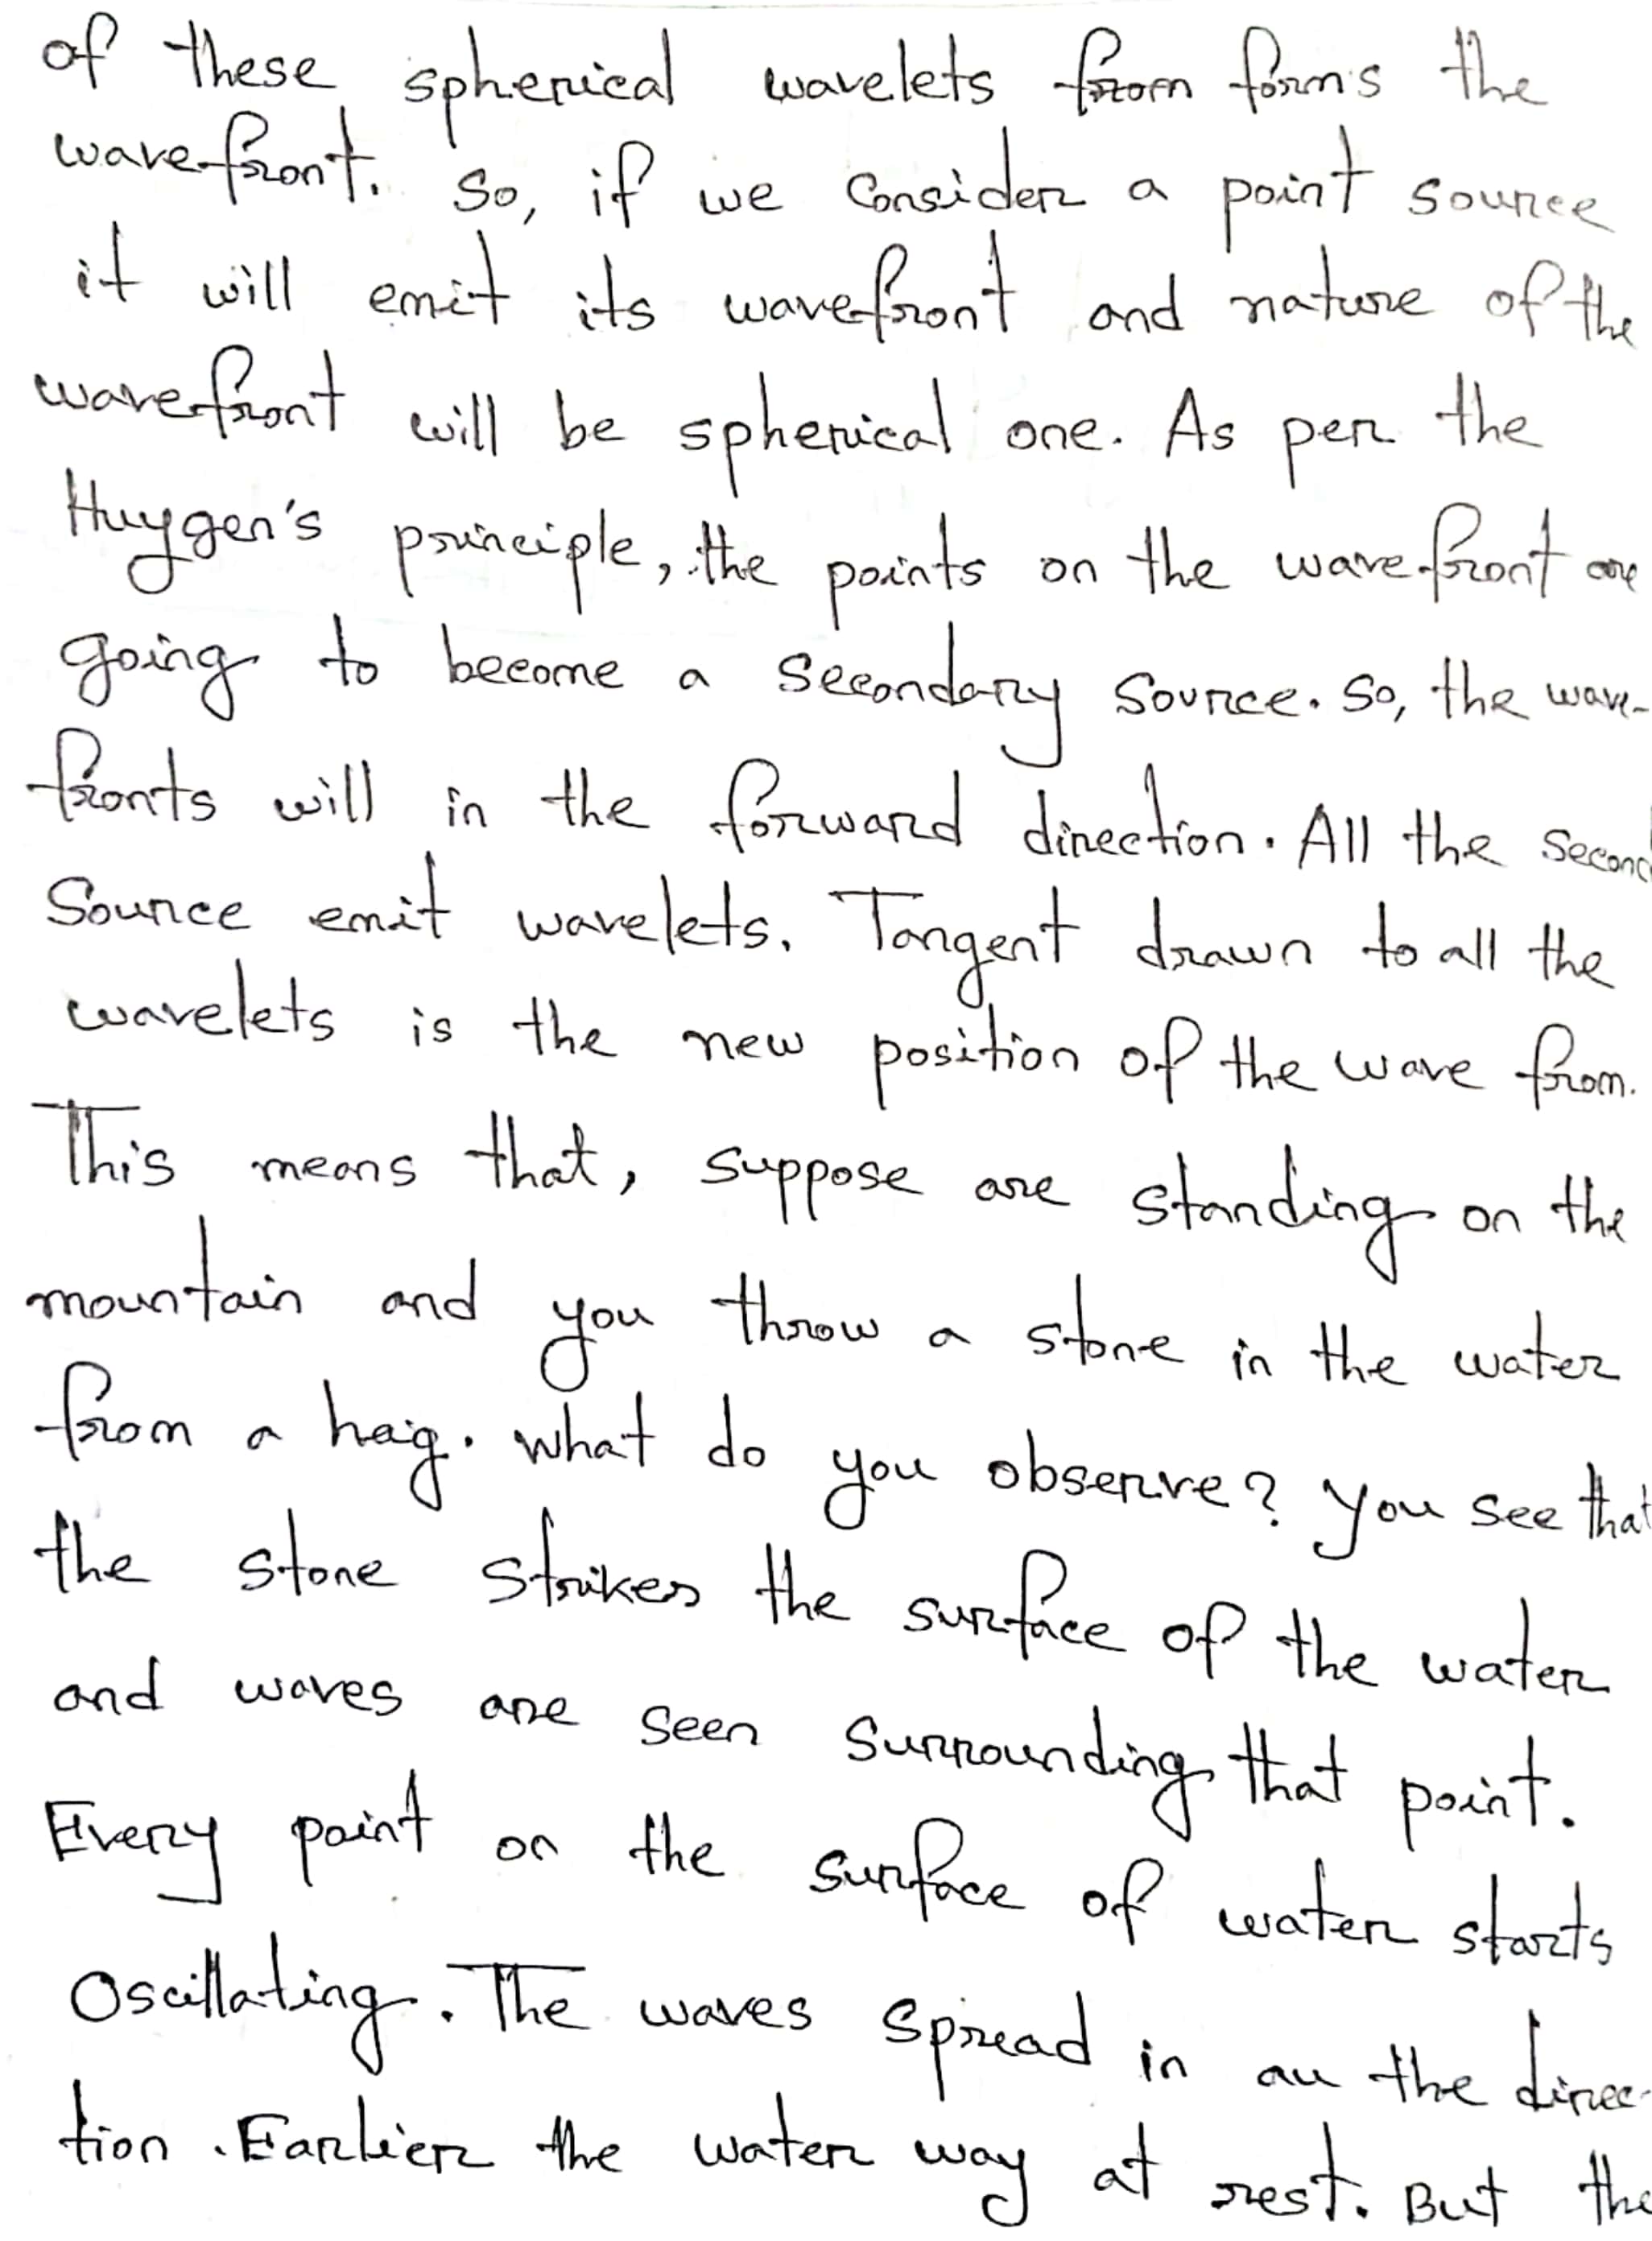 of these spherical wavelets from forms the
wavefront. So, if we consider a point source
it will emit its wavefront and nature of the
wavefront will be spherical one. As per the
Huygen's principle, the points on the wavefront are
going to become a secondary source. So, the wave-
fronts will in the forward direction. All the second
source emit wavelets. Tangent drawn to all the
wavelets is the new position of the wave from.
This means that, suppose are standing on the
mountain and you throw a stone in the water
from a heig. What do you observe? You see that
the stone strikes the surface of the water
and waves are seen surrounding that point.
Every point on the surface of water starts
Oscillating. The waves spread in au the direc-
tion. Earlier the water way at rest. But the